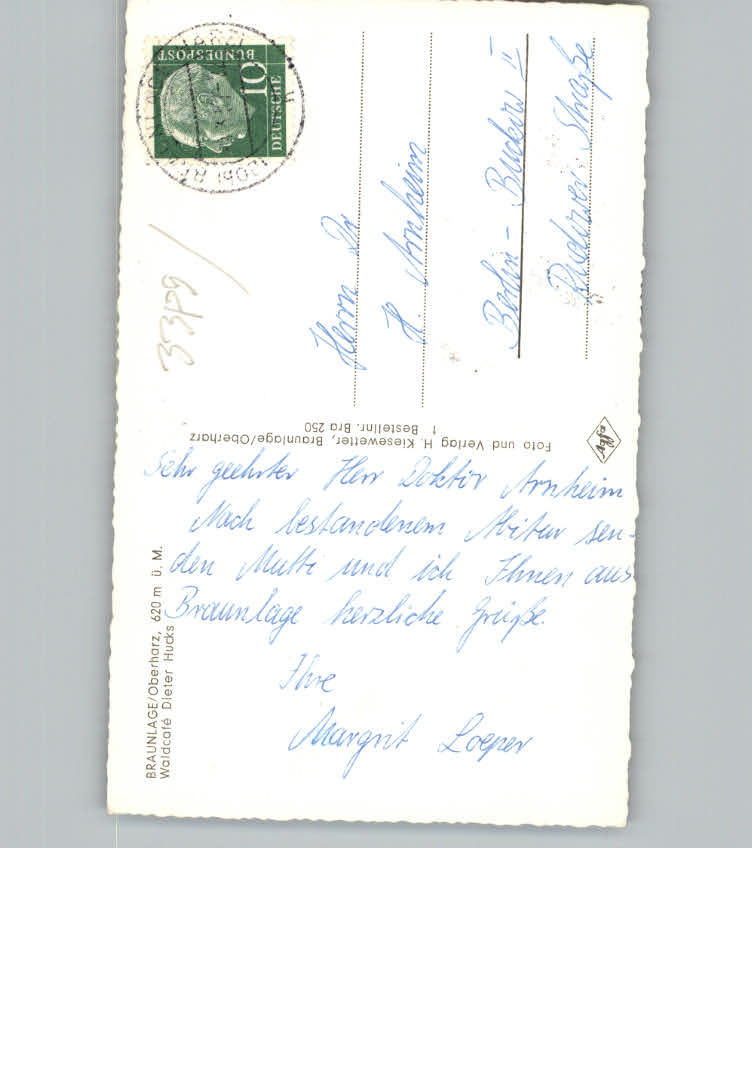 Sehr geehrter Herr Doktor Arnheim
Nach bestandenem Abitur sen-
den Mutti und ich Ihnen aus
Braunlage herzliche Grüße.
Ihre
Margrit Loeper
Herrn Dr
H. Arnheim
Berlin - Buckow II
Rudower Straße
Foto und Verlag H. Kiesewetter, Braunlage/Oberharz
1 Bestellnr. Bra 250
BRAUNLAGE/Oberharz, 620 m ü. M.
Waldcafé Dieter Hucks
DEUTSCHE
10
BUNDESPOST
Agfa